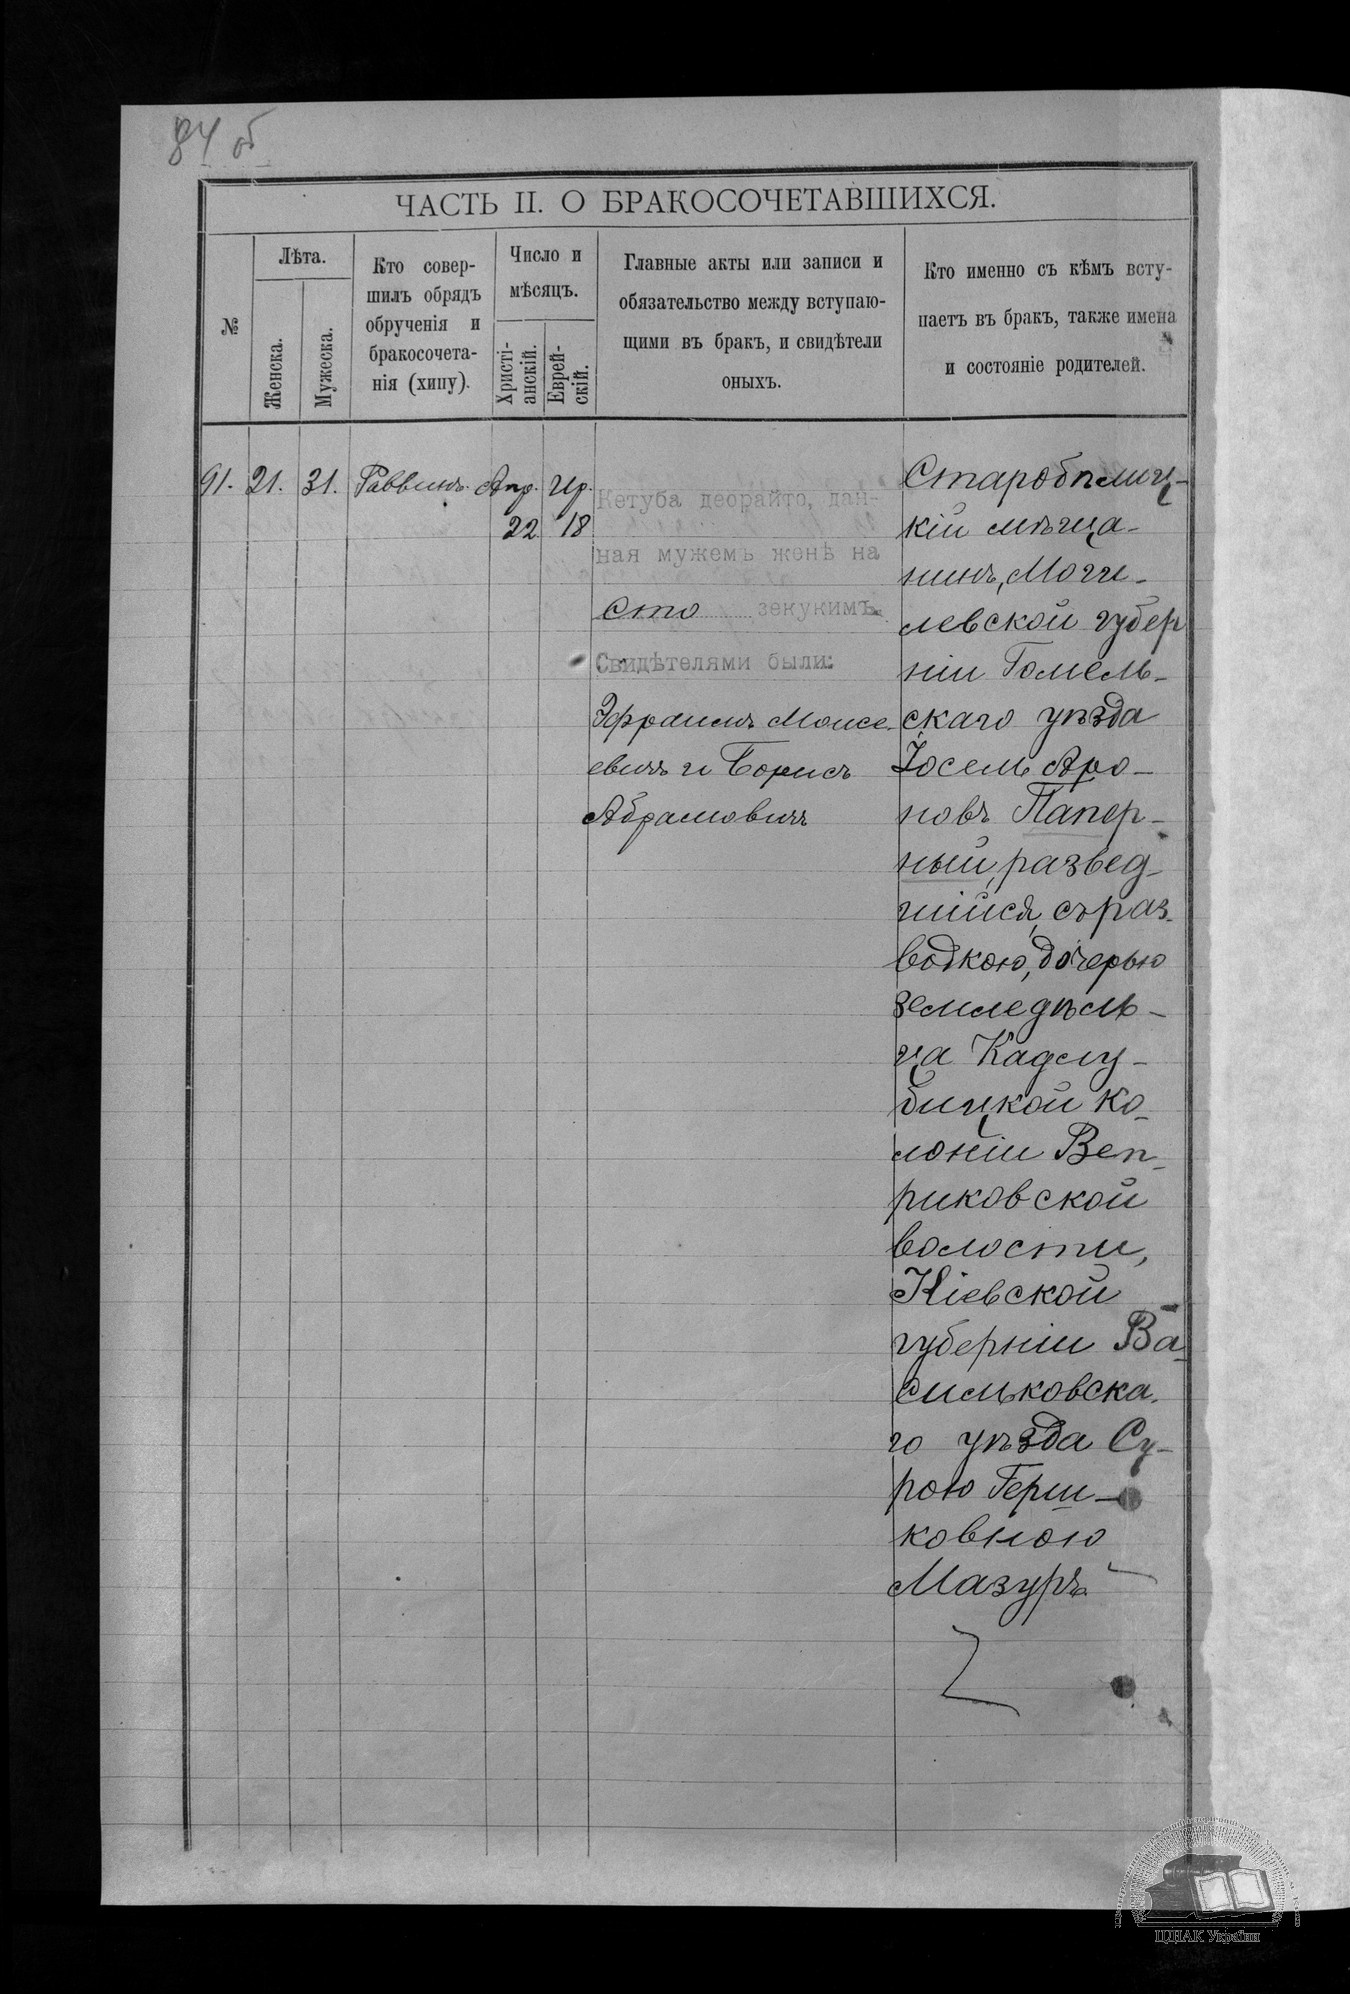 84 об
ЧАСТЬ II. О БРАКОСОЧЕТАВШИХСЯ.
№
Лѣта.
Женска.
Мужеска.
Кто совер-
шилъ обрядъ
обрученія и
бракосочета-
нія (хипу).
Число и
мѣсяцъ.
Христі-
анскій.
Еврей-
скій.
Главные акты или записи и
обязательство между вступаю-
щими въ бракъ, и свидѣтели
оныхъ.
Кто именно съ кѣмъ всту-
паетъ въ бракъ, также имена
и состояніе родителей.
91. 21. 31. Раввинъ. Апр. Ир.
22 18
Кетуба деорайто, дан-
ная мужемъ женѣ на
сто зекукимъ.
Свидѣтелями были:
Эфроимъ Моисе-
евичъ и Борисъ
Абрамовичъ
Старобѣлиц-
кій мѣща-
нинъ, Моги-
левской губер
ніи Гомель-
скаго уѣзда
Іосель Аро-
новъ Папер-
ный, развед-
шійся, съ раз-
водкою, дочерью
земледѣль-
ца Кадлу-
бицкой ко-
лоніи Веп-
риковской
волости,
Кіевской
губерніи Ва-
сильковска-
го уѣзда Су-
рою Герш-
ковною
Мазуръ.
ЦДІАК України